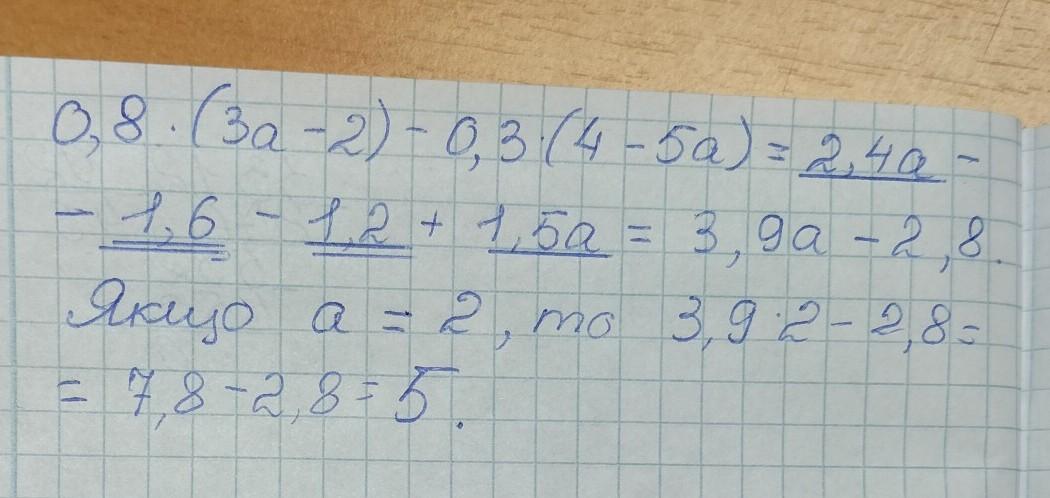 0,8·(3a-2)-0,3·(4-5a)=2,4a-
-1,6-1,2+1,5a=3,9a-2,8.
Якщо a=2, то 3,9·2-2,8=
=7,8-2,8=5.